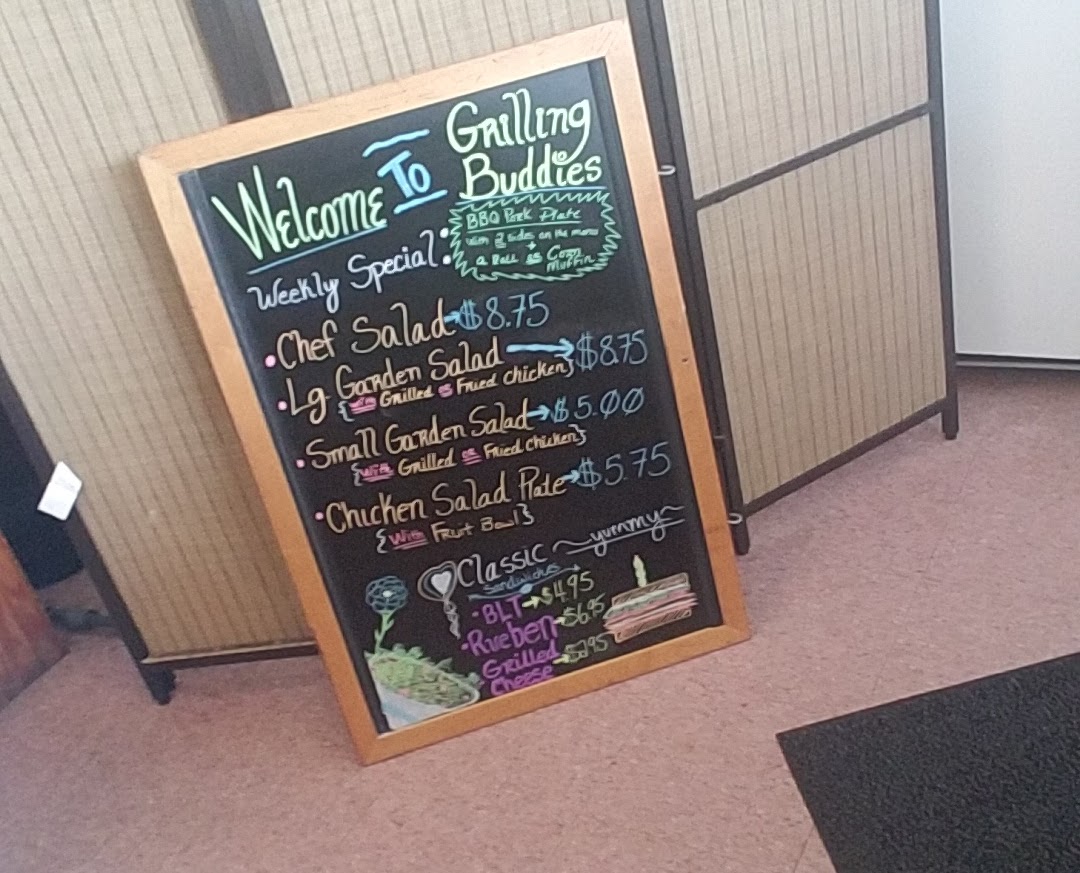 Welcome To Grilling
Buddies
Weekly Special:
BBQ Pork Plate
with 2 sides on the menu
+
a Roll or Corn
Muffin
• Chef Salad → $8.75
• Lg Garden Salad → $8.75
{with Grilled or Fried chicken}
• Small Garden Salad → $5.00
{with Grilled or Fried chicken}
• Chicken Salad Plate → $5.75
{With Fruit Bowl}
Classic ~yummy~
Sandwiches
• BLT → $4.95
• Rueben → $6.95
Grilled → $2.95
Cheese